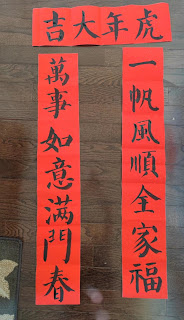 虎年大吉
一帆風順全家福
萬事如意满門春